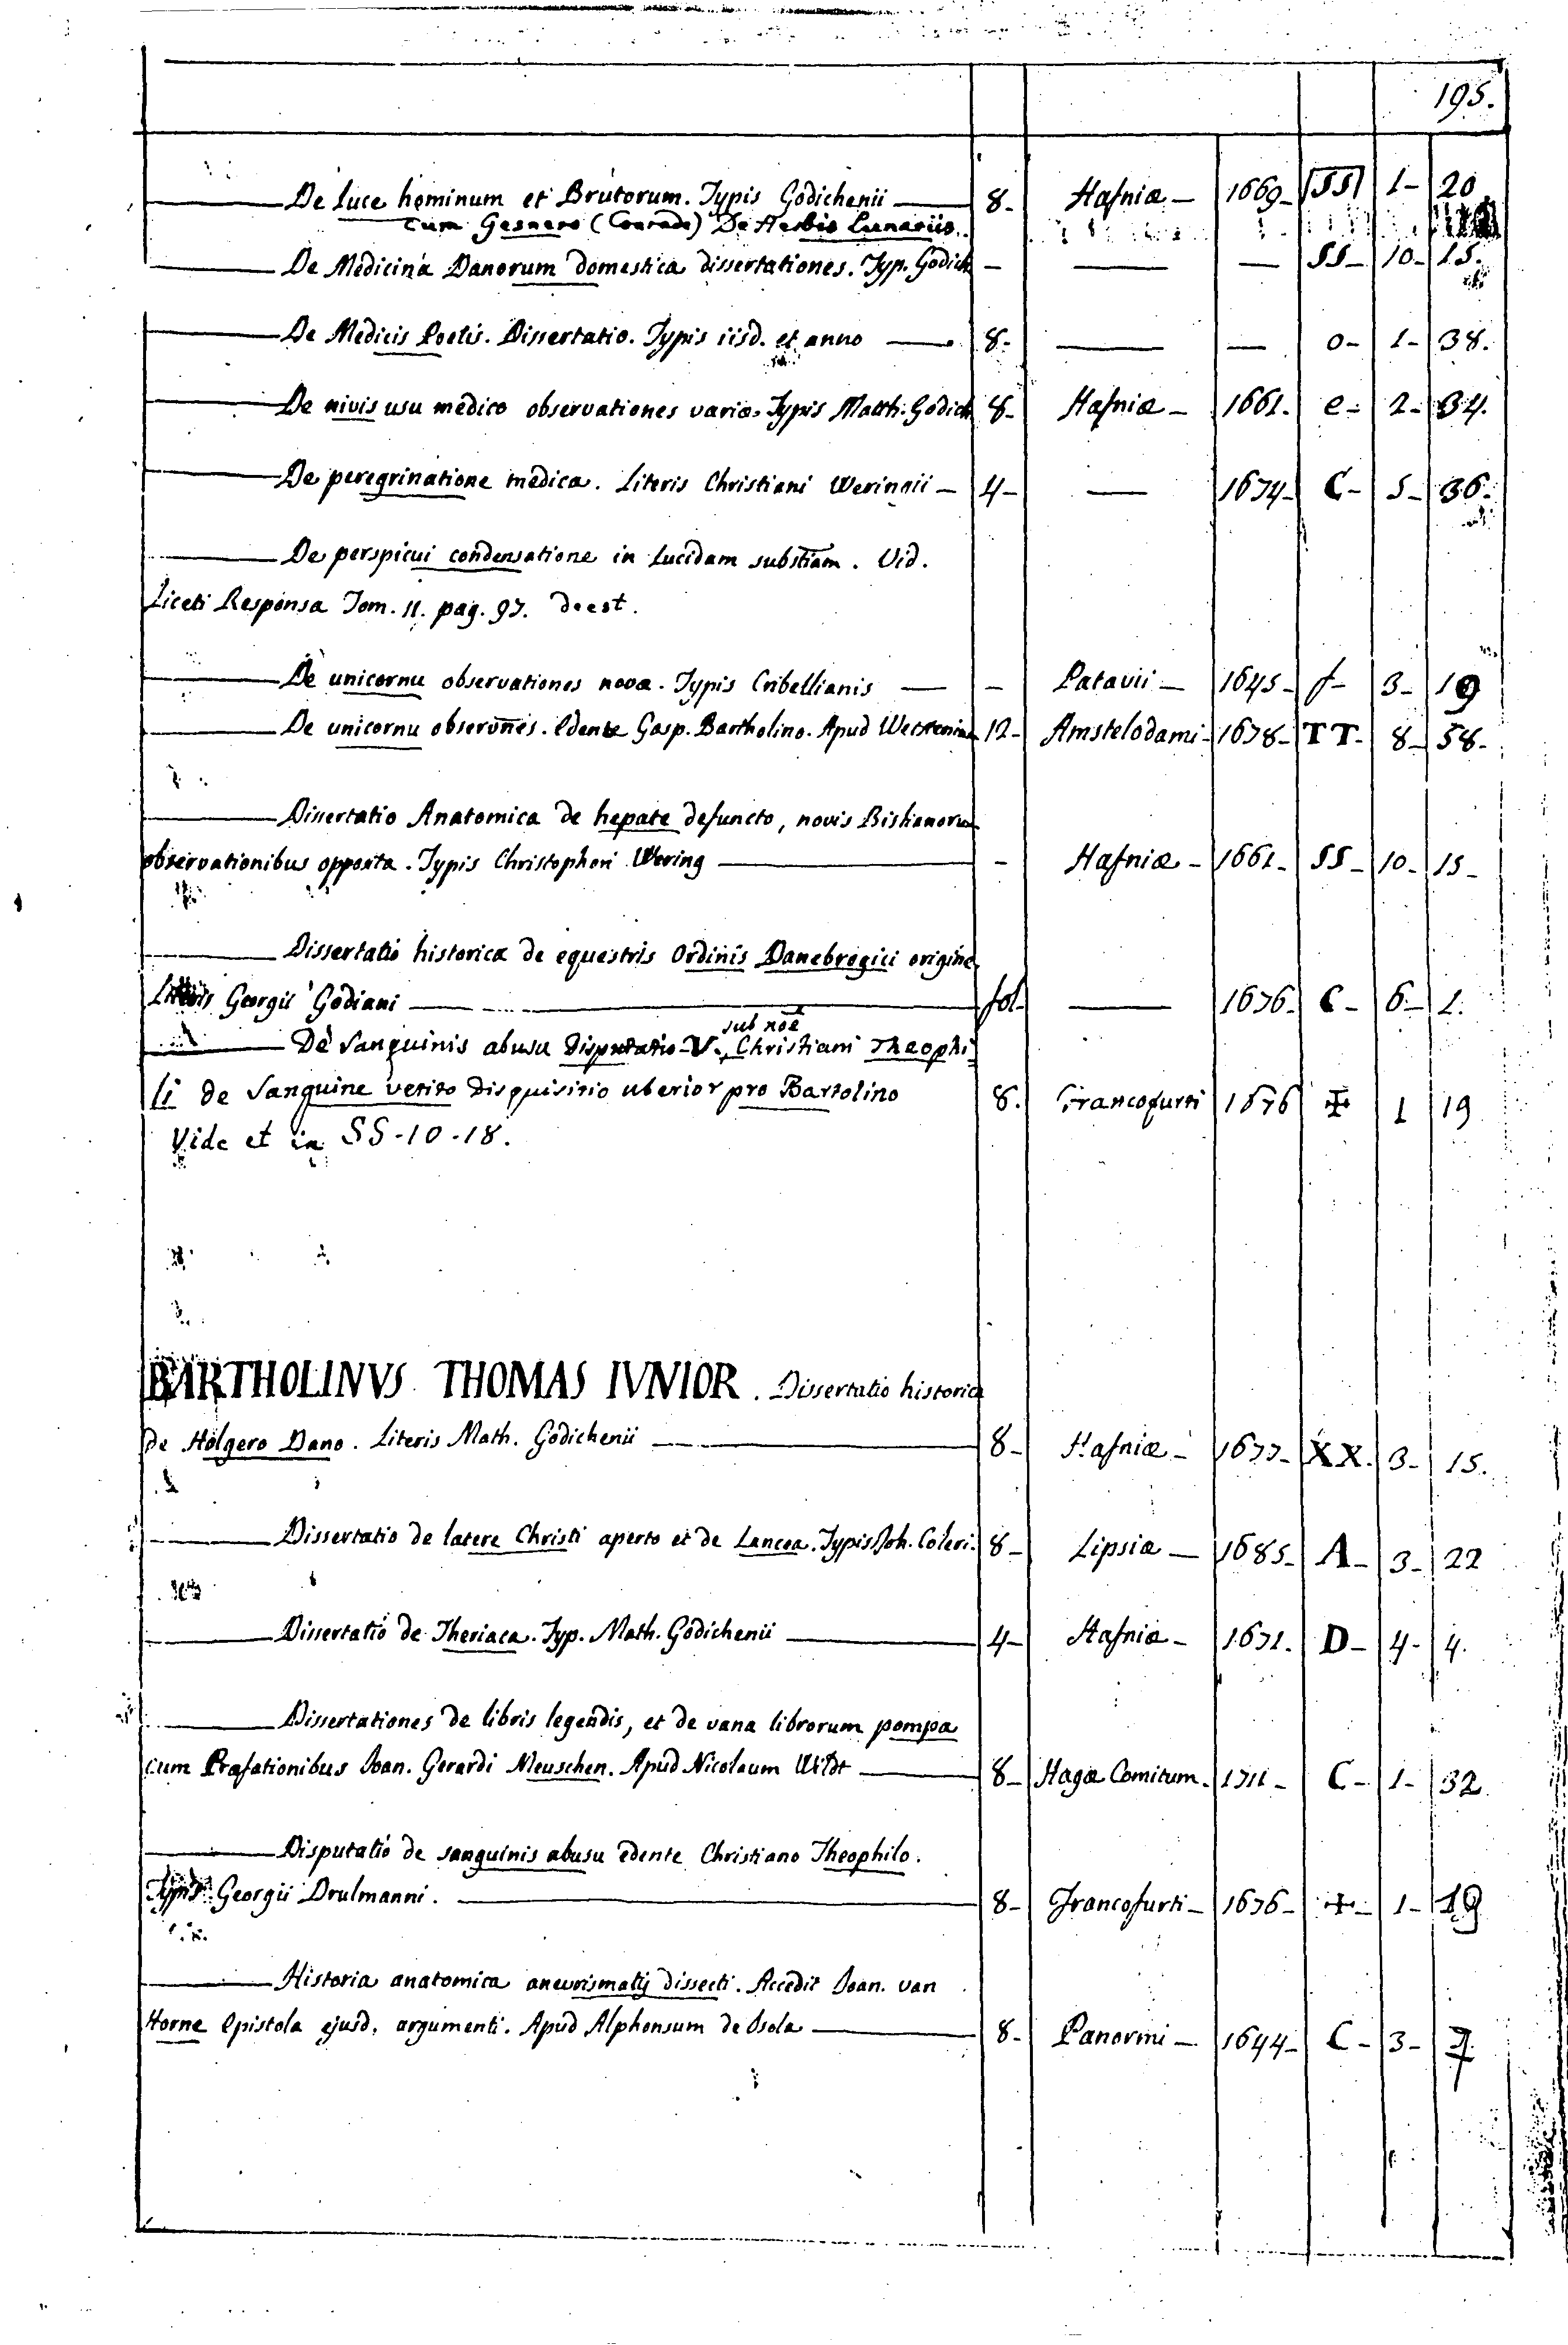 195.
——— De luce hominum et Brutorum. Typis Godichenii ——— 8- Hafniæ - 1669- SS 1- 20
cum Gesnero (Conrado) De Herbis Lunariis.
——— De Medicina Danorum domestica dissertationes. Typ. Godich - ——— — SS- 10- 15.
——— De Medicis Poetis. Dissertatio. Typis iisd. et anno ——— 8- ——— — o- 1- 38.
——— De nivis usu medico observationes variæ. Typis Matth. Godich 8- Hafniæ - 1661- e- 2- 34.
——— De peregrinatione medica. Literis Christiani Weringii - 4- ——— 1674- C- 5- 36-
——— De perspicui condensatione in lucidam substiam. Vid.
Liceti Responsa Tom. 11. pag. 97. deest.
——— De unicornu observationes novæ. Typis Cribellianis — - Patavii - 1645- f- 3- 19
——— De unicornu observnes. edente Gasp. Bartholino. Apud 12- Amstelodami- 1678- TT- 8- 58-
——— Dissertatio Anatomica de hepate defuncto, novis
observationibus opposita. Typis Christophori Wering ——— - Hafniæ - 1661- SS- 10- 15-
——— Dissertatio historica de equestris Ordinis Danebrogici origine
Literis Georgii Godiani ——— fol- ——— 1676- C- 6- 1.
sub noe
——— De Sanguinis abusu Disputatio-V. Christiani Theophi
li de Sanguine vetito disquisitio uberior pro Bartolino 8. Francofurti 1676 ✠ 1 19
Vide et in SS-10-18.
BARTHOLINVS THOMAS IVNIOR. Dissertatio historica
de Holgero Dano. Literis Math. Godichenii ——— 8- Hafniæ - 1677- XX. 3- 15.
——— Dissertatio de latere Christi aperto et de Lancea. Typis Joh. Coleri. 8- Lipsiæ — 1685- A- 3- 22
——— Dissertatio de Theriaca. Typ. Math. Godichenii ——— 4- Hafniæ - 1671. D- 4- 4.
——— Dissertationes de libris legendis, et de vana librorum pompa
cum Præfationibus Joan. Gerardi Meuschen. Apud Nicolaum Wildt ——— 8- Hagæ Comitum- 1711- C- 1- 32
——— Disputatio de sanguinis abusu edente Christiano Theophilo.
Typis Georgii Drulmanni. ——— 8- Francofurti- 1676- ✠- 1- 19
——— Historia anatomica aneurismatis dissecti. Accedit Joan. van
Horne Epistola ejusd. argumenti. Apud Alphonsum de Isola ——— 8- Panormi - 1644- C- 3- 7